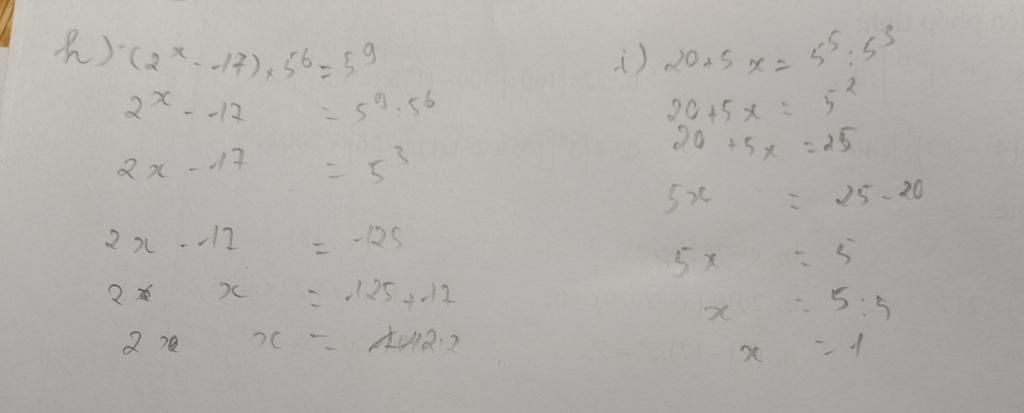 h) (2^x - 17) × 5^6 = 5^9
2^x - 17 = 5^9 : 5^6
2x - 17 = 5^3
2x - 17 = 125
2x x = 125 + 17
2x x =
i) 20 + 5x = 5^5 : 5^3
20 + 5x = 5^2
20 + 5x = 25
5x = 25 - 20
5x = 5
x = 5 : 5
x = 1